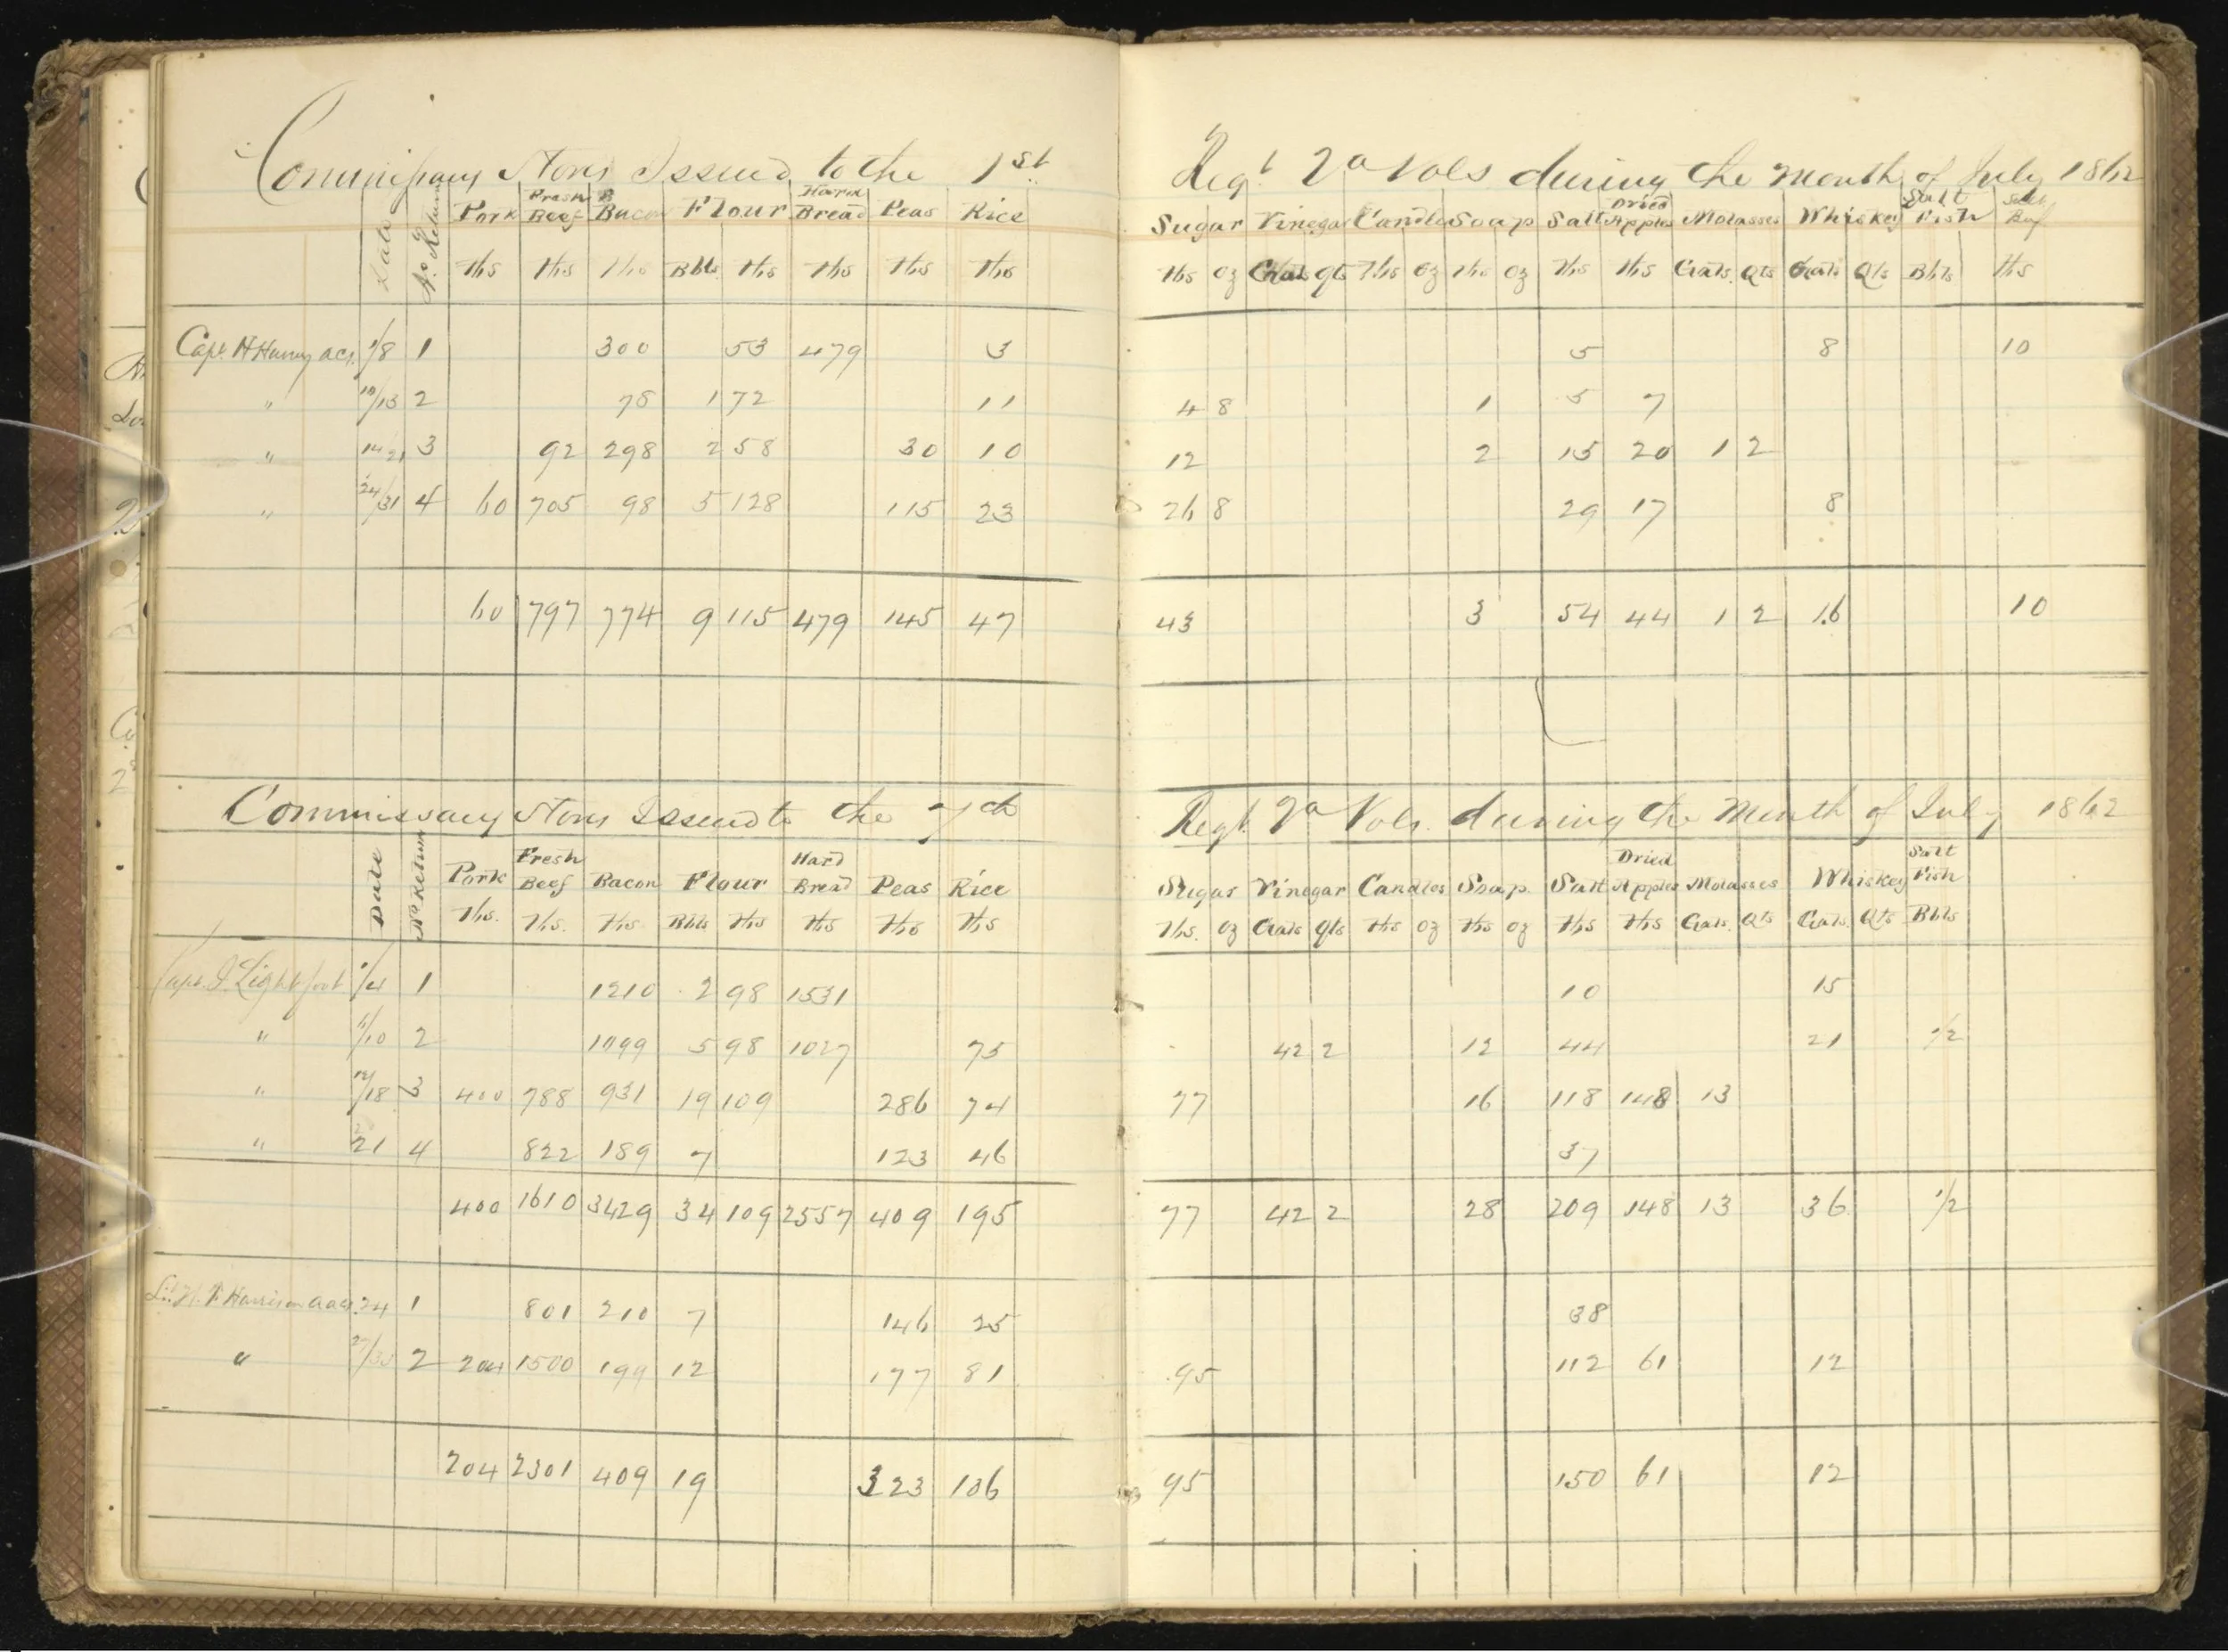 Commissary Stores Issued to the 1st Regt Va Vols during the Month of July 1862
Date No. Return Pork Fresh Beef Bacon Flour Hard Bread Peas Rice Sugar Vinegar Candles Soap Salt Dried Apples Molasses Whiskey Salt Fish Salt Beef
lbs lbs lbs Bbls lbs lbs lbs lbs lbs oz Gals qts lbs oz lbs oz lbs lbs Gals. Qts Gals Qts Bbls lbs
Capt. H Harney acs. 1/8 1 300 53 479 3 5 8 10
" 10/13 2 78 1 72 11 4 8 1 5 7
" 14 21 3 92 298 2 58 30 10 12 2 15 20 1 2
" 24/31 4 60 705 98 5 128 115 23 26 8 29 17 8
60 797 774 9 115 479 145 47 43 3 54 44 1 2 16 10
Commissary Stores Issued to the 7th Regt. Va Vols. during the Month of July 1862
Date No Return Pork Fresh Beef Bacon Flour Hard Bread Peas Rice Sugar Vinegar Candles Soap Salt Dried Apples Molasses Whiskey Salt Fish
lbs. lbs. lbs Bbls lbs lbs lbs lbs lbs. oz Gals qts lbs oz lbs oz lbs lbs Gals. Qts Gals. Qts Bbls
Capt. J. Lightfoot 1/4 1 1210 2 98 1531 10 15
" /10 2 1099 5 98 1027 75 42 2 12 44 21 1/2
" 12/18 3 400 788 931 19 109 286 74 77 16 118 148 13
" 21 4 822 189 7 123 46 37
400 1610 3429 34 109 2557 409 195 77 42 2 28 209 148 13 36 1/2
Lt. Harrison 24 1 801 210 7 146 25 38
" 2 204 1500 199 12 177 81 95 112 61 12
204 2301 409 19 323 106 95 150 61 12